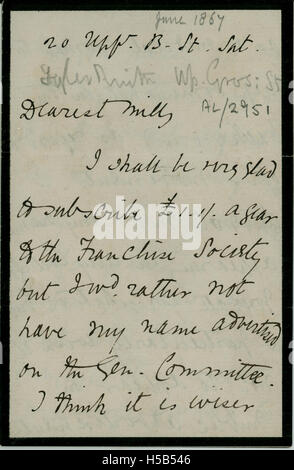 June 1867
20 Uppr. B. St. Sat.
Up. Gros: St
Dearest Milly
AL/2951
I shall be very glad
to subscribe £1.1. a year
to the Franchise Society
but I wd. rather not
have my name advertised
on the Gen. Committee.
I think it is wiser
alamy
Image ID: H5B546
www.alamy.com